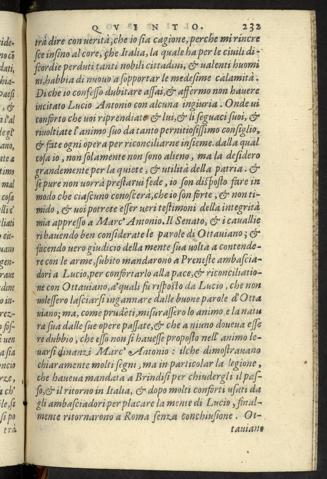 QVINTO. 232
trà dire con uerità, che io sia cagione, perche mi rincre
sce infino al core, che Italia, la quale ha per le ciuili di-
scordie perduti tanti nobili cittadini, & ualenti huomi
ni, habbia di nuouo a sopportar le medesime calamità.
Di che io confesso dubitare assai, & affermo non hauere
incitato Lucio Antonio con alcuna ingiuria. Onde ui
conforto che uoi riprendiate & lui, & li seguaci suoi, &
riuoltiate l'animo suo da tanto pernitiosissimo consiglio,
& fate ogni opera per riconciliarne insieme. dalla qual
cosa io, non solamente non sono alieno, ma la desidero
grandemente per la quiete, & utilità della patria. &
se pure non uorrà prestarui fede, io son disposto fare in
modo che ciascuno conoscerà, che io son forte, & non ti-
mido, & uoi potrete esser ueri testimoni della integrità
mia appresso a Marc'Antonio. Il Senato, & i cauallie
ri hauendo ben considerate le parole di Ottauiano; &
facendo uero giudicio della mente sua uolta a contende-
re con le arme, subito mandarono a Preneste ambascia-
dori a Lucio, per confortarlo alla pace, & riconciliatio-
ne con Ottauiano, a' quali fu risposto da Lucio, che non
uolessero lasciarsi ingannare dalle buone parole d'Otta
uiano; ma, come prudēti, misurassero lo animo e la natu
ra sua dalle sue opere passate, & che a niuno doueua esse
re dubbio, che esso non si hauesse proposto nell'animo le-
uarsi dinanzi Marc'Antonio: ilche dimostrauano
chiaramente molti segni, ma in particolar la legione,
che haueua mandata a Brindisi per chiudergli il pas-
so, & il ritorno in Italia, & dopo molti conforti usati da
gli ambasciadori per placare la mente di Lucio, final-
mente ritornarono a Roma senza conchiusione. Ot-
tauiano